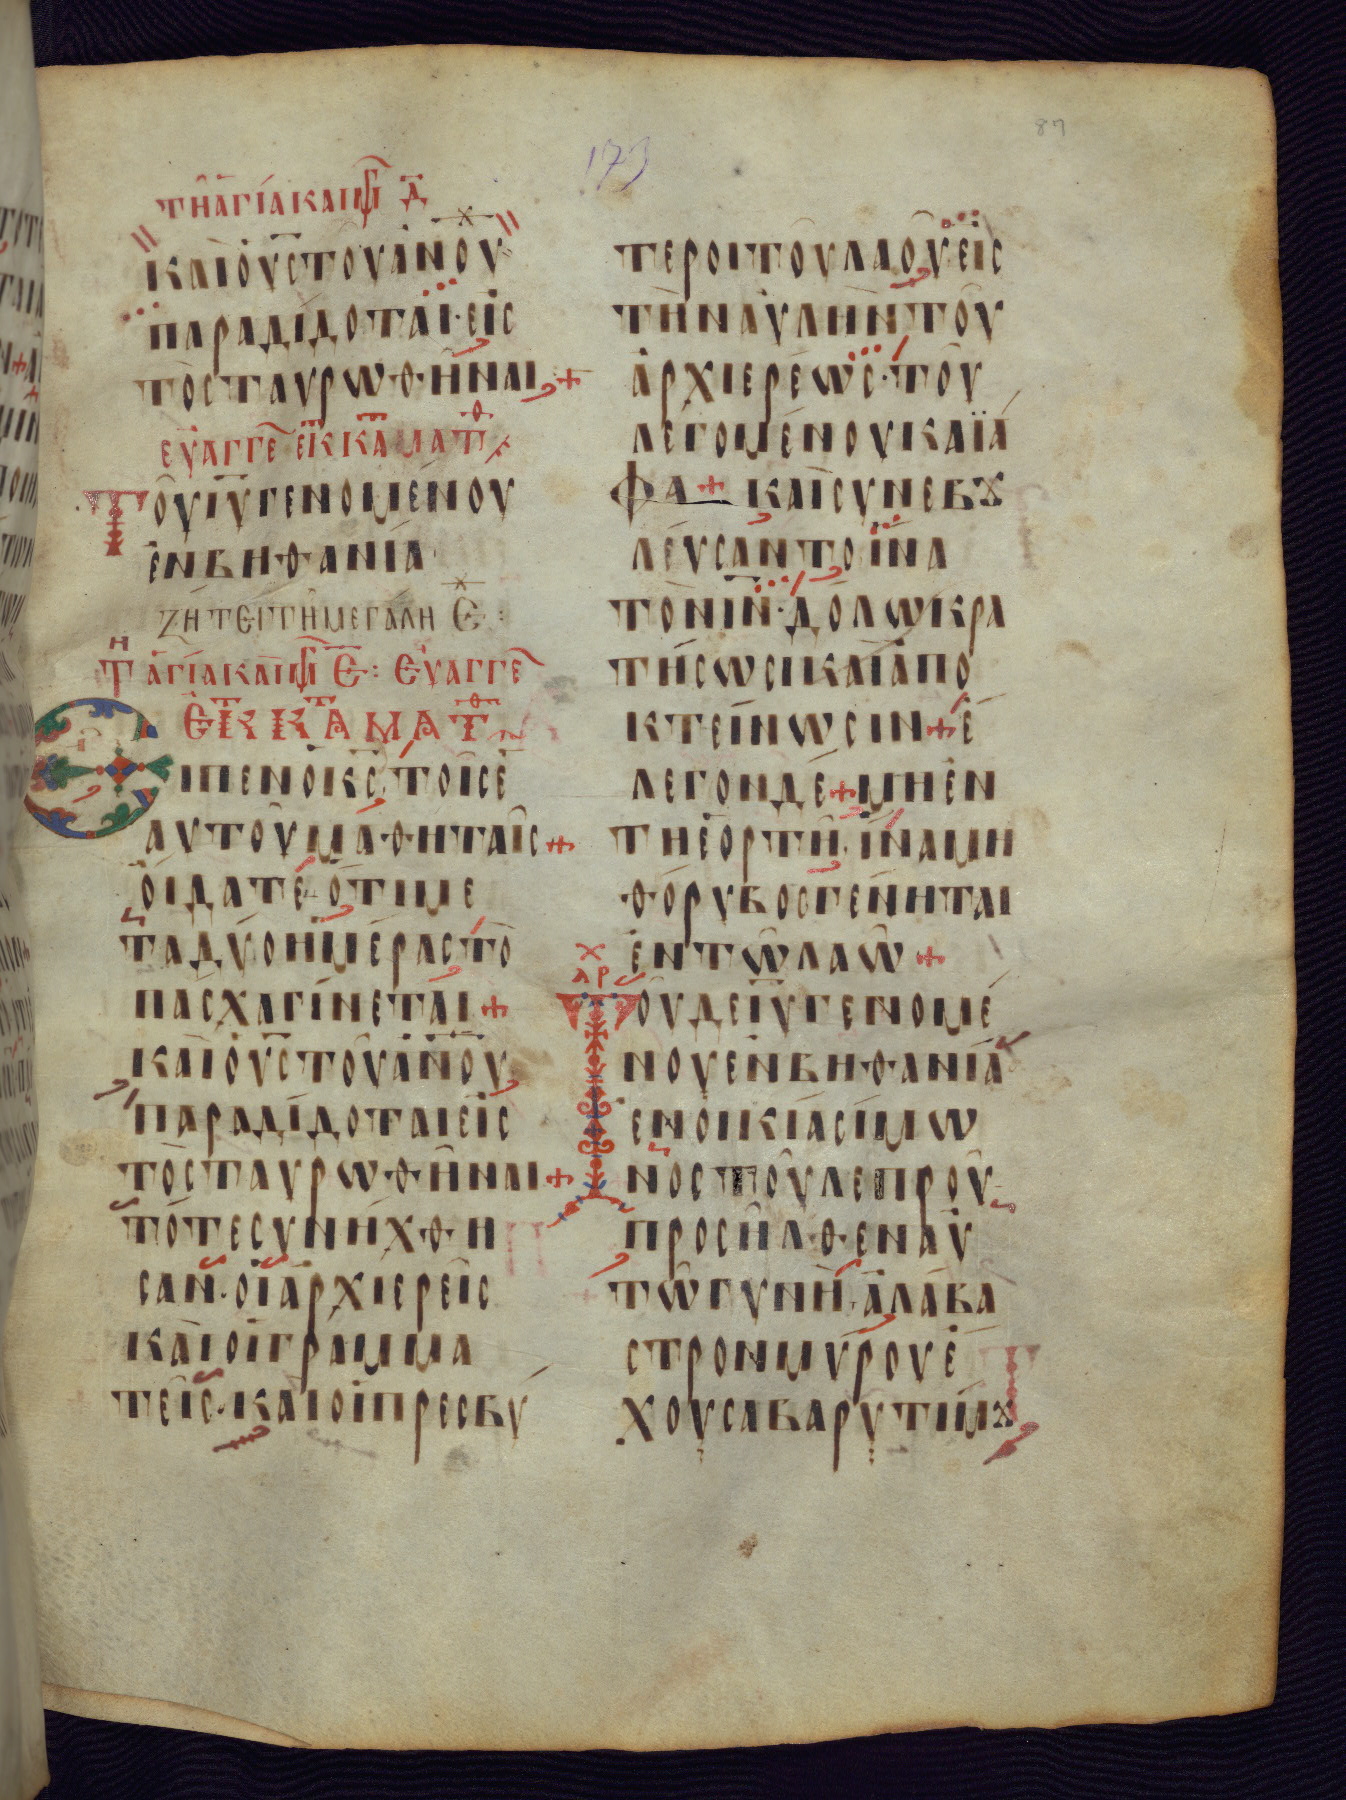 87
173
ΤΗ ΑΓΙΑ ΚΑΙ ΜΓ Δ
ΚΑΙ Ο ΥΣ ΤΟΥ ΑΝΟΥ
ΠΑΡΑΔΙΔΟΤΑΙ· ΕΙΣ
ΤΟ ΣΤΑΥΡΩΘΗΝΑΙ +
ΕΥΑΓΓΕ ΕΚ Κ ΤΑ ΜΑΤΘ
ΤΟΥ ΙΥ ΓΕΝΟΜΕΝΟΥ
ΕΝ ΒΗΘΑΝΙΑ
ΖΗΤΕΙ ΤΗ ΜΕΓΑΛΗ Ε:
ΤΗ ΑΓΙΑ ΚΑΙ ΜΓ Ε: ΕΥΑΓΓΕ
ΕΚ Κ ΤΑ ΜΑΤΘ
ΕΙΠΕΝ Ο ΚΣ ΤΟΙΣ Ε
ΑΥΤΟΥ ΜΑΘΗΤΑΙΣ +
ΟΙΔΑΤΕ ΟΤΙ ΜΕ
ΤΑ ΔΥΟ ΗΜΕΡΑΣ ΤΟ
ΠΑΣΧΑ ΓΙΝΕΤΑΙ +
ΚΑΙ Ο ΥΣ ΤΟΥ ΑΝΟΥ
ΠΑΡΑΔΙΔΟΤΑΙ ΕΙΣ
ΤΟ ΣΤΑΥΡΩΘΗΝΑΙ +
ΤΟΤΕ ΣΥΝΗΧΘΗ
ΣΑΝ· ΟΙ ΑΡΧΙΕΡΕΙΣ
ΚΑΙ ΟΙ ΓΡΑΜΜΑ
ΤΕΙΣ· ΚΑΙ ΟΙ ΠΡΕΣΒΥ
ΤΕΡΟΙ ΤΟΥ ΛΑΟΥ ΕΙΣ
ΤΗΝ ΑΥΛΗΝ ΤΟΥ
ΑΡΧΙΕΡΕΩΣ· ΤΟΥ
ΛΕΓΟΜΕΝΟΥ ΚΑΪΑ
ΦΑ + ΚΑΙ ΣΥΝΕΒȢ
ΛΕΥΣΑΝΤΟ ΙΝΑ
ΤΟΝ ΙΝ· ΔΟΛΩ ΚΡΑ
ΤΗΣΩΣΙ ΚΑΙ ΑΠΟ
ΚΤΕΙΝΩΣΙΝ + Ε
ΛΕΓΟΝ ΔΕ + ΜΗ ΕΝ
ΤΗ ΕΟΡΤΗ· ΙΝΑ ΜΗ
ΘΟΡΥΒΟΣ ΓΕΝΗΤΑΙ
ΕΝ ΤΩ ΛΑΩ +
ΑΡΧ
ΤΟΥ ΔΕ ΙΥ ΓΕΝΟΜΕ
ΝΟΥ ΕΝ ΒΗΘΑΝΙΑ
ΕΝ ΟΙΚΙΑ ΣΙΜΩ
ΝΟΣ ΤΟΥ ΛΕΠΡΟΥ
ΠΡΟΣΗΛΘΕΝ ΑΥ
ΤΩ ΓΥΝΗ· ΑΛΑΒΑ
ΣΤΡΟΝ ΜΥΡΟΥ Ε
ΧΟΥΣΑ ΒΑΡΥΤΙΜȢ